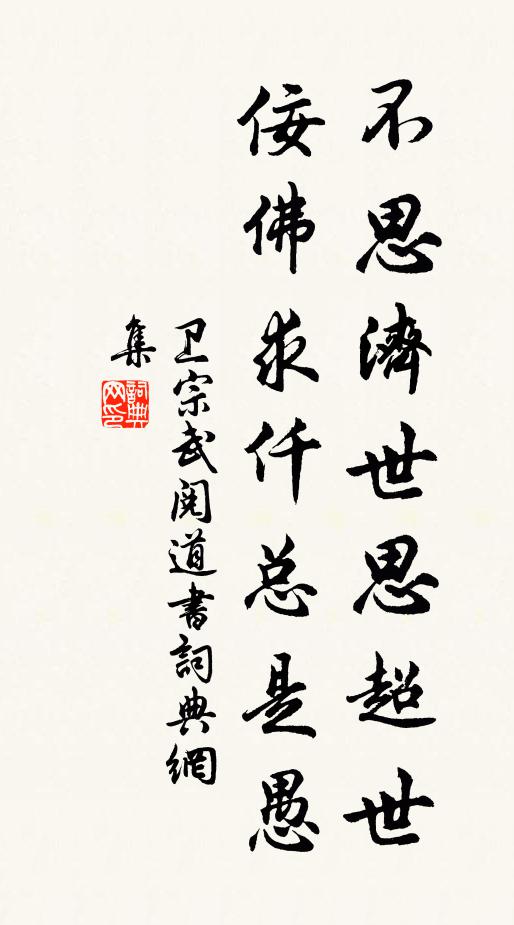 不思濟世思超世
佞佛求仟总是愚
卫宗武阅道書詞典網
集
詞典网印